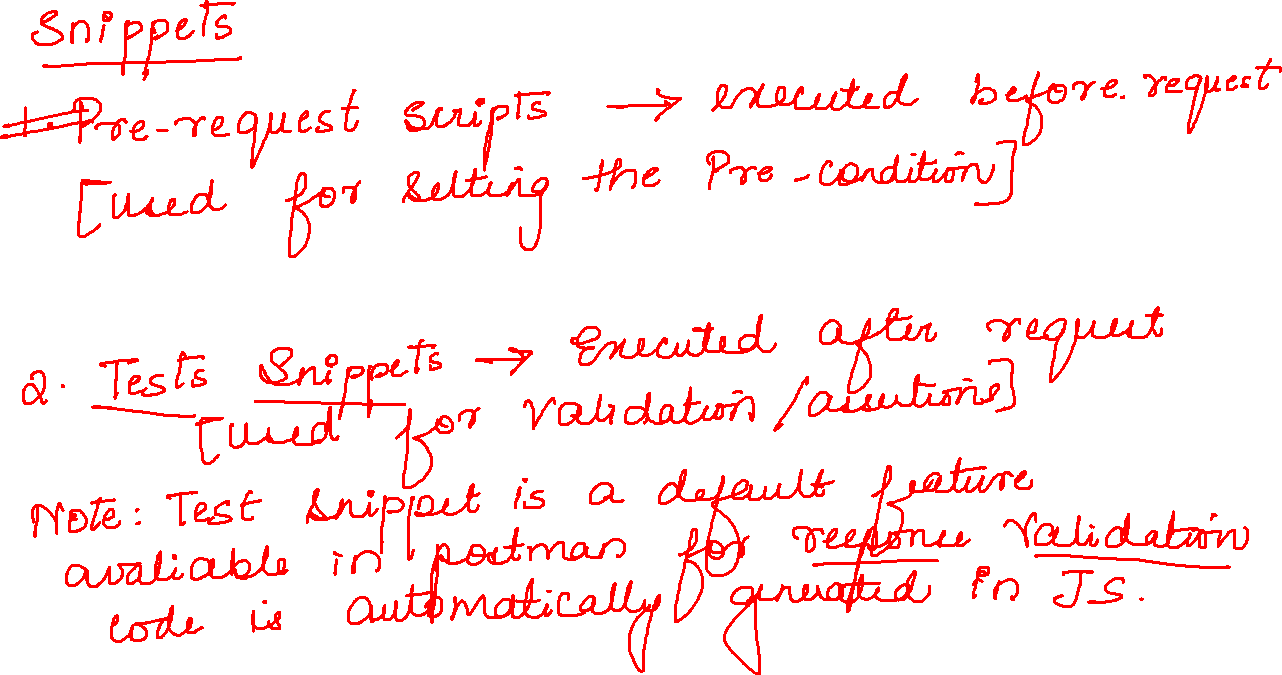 Snippets
1. Pre-request Scripts → executed before request
[Used for Setting the Pre-condition]
2. Tests Snippets → Executed after request
[Used for Validation/assertions]
Note: Test Snippet is a default feature
avaliable in postman for response Validation
code is automatically generated in JS.